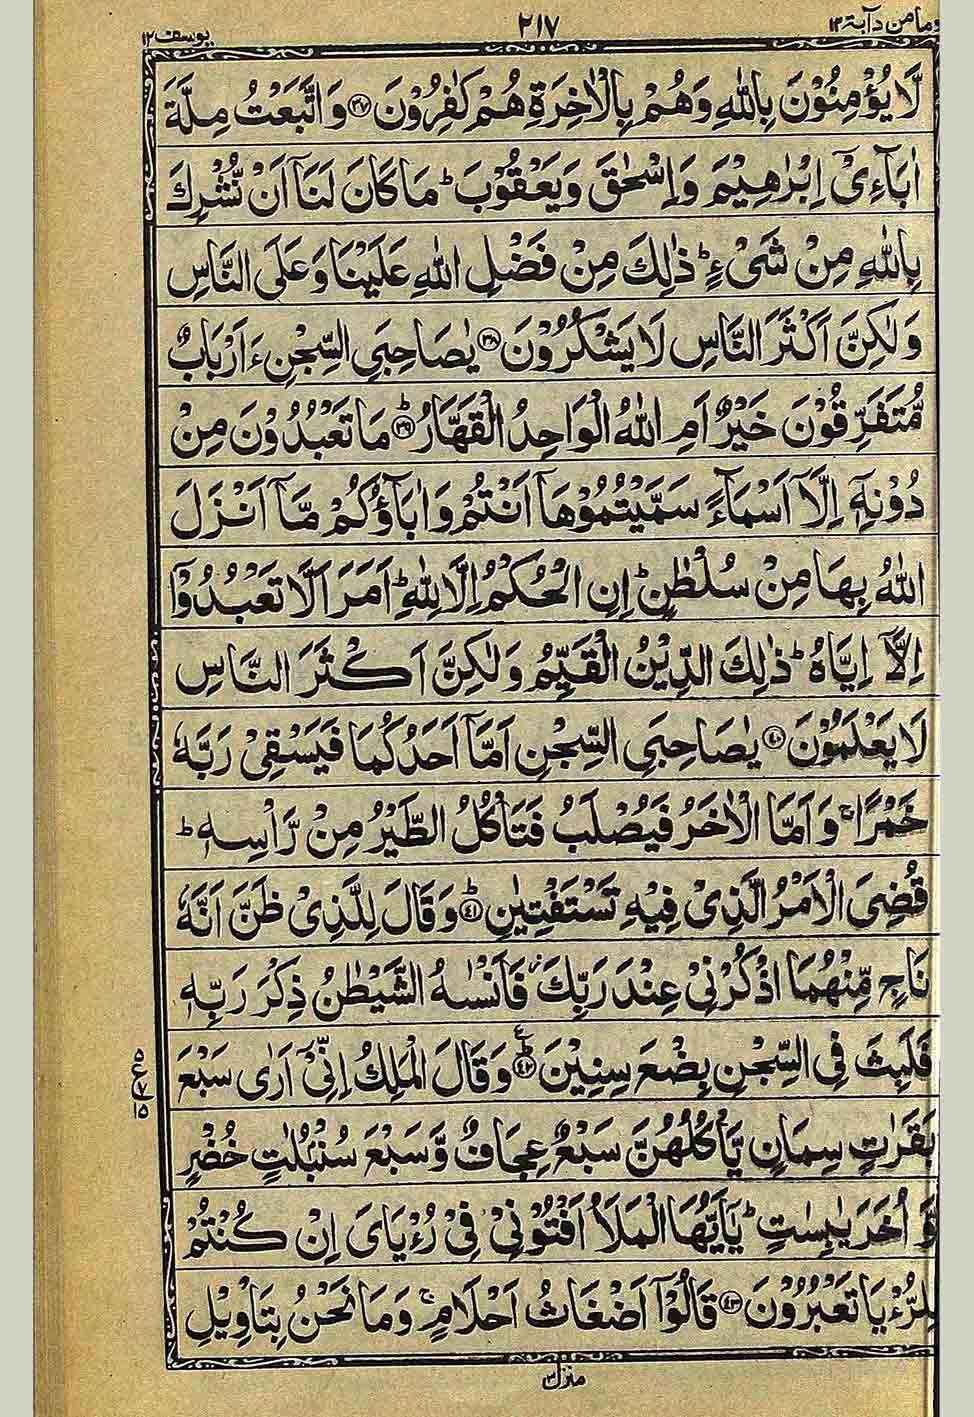 ومامن دآبة ۱۲
۲۱۷
یوسف ۱۲
لَّا يُؤْمِنُوْنَ بِاللّٰهِ وَهُمْ بِالْاٰخِرَةِ هُمْ كٰفِرُوْنَ ۝۳۷ وَاتَّبَعْتُ مِلَّةَ
اٰبَآءِیْٓ اِبْرٰهِيْمَ وَاِسْحٰقَ وَيَعْقُوْبَ ؕ مَا كَانَ لَنَآ اَنْ نُّشْرِكَ
بِاللّٰهِ مِنْ شَیْءٍ ؕ ذٰلِكَ مِنْ فَضْلِ اللّٰهِ عَلَيْنَا وَعَلَى النَّاسِ
وَلٰكِنَّ اَكْثَرَ النَّاسِ لَا يَشْكُرُوْنَ ۝۳۸ يٰصَاحِبَیِ السِّجْنِ ءَاَرْبَابٌ
مُّتَفَرِّقُوْنَ خَيْرٌ اَمِ اللّٰهُ الْوَاحِدُ الْقَهَّارُ ؕ۝۳۹ مَا تَعْبُدُوْنَ مِنْ
دُوْنِهٖٓ اِلَّآ اَسْمَآءً سَمَّيْتُمُوْهَآ اَنْتُمْ وَاٰبَآؤُكُمْ مَّآ اَنْزَلَ
اللّٰهُ بِهَا مِنْ سُلْطٰنٍ ؕ اِنِ الْحُكْمُ اِلَّا لِلّٰهِ ؕ اَمَرَ اَلَّا تَعْبُدُوْٓا
اِلَّآ اِيَّاهُ ؕ ذٰلِكَ الدِّيْنُ الْقَيِّمُ وَلٰكِنَّ اَكْثَرَ النَّاسِ
لَا يَعْلَمُوْنَ ۝۴۰ يٰصَاحِبَیِ السِّجْنِ اَمَّآ اَحَدُكُمَا فَيَسْقِیْ رَبَّهٗ
خَمْرًا ۚ وَاَمَّا الْاٰخَرُ فَيُصْلَبُ فَتَاْكُلُ الطَّيْرُ مِنْ رَّاْسِهٖ ؕ
قُضِیَ الْاَمْرُ الَّذِیْ فِيْهِ تَسْتَفْتِيٰنِ ؕ۝۴۱ وَقَالَ لِلَّذِیْ ظَنَّ اَنَّهٗ
نَاجٍ مِّنْهُمَا اذْكُرْنِیْ عِنْدَ رَبِّكَ ؗ فَاَنْسٰىهُ الشَّيْطٰنُ ذِكْرَ رَبِّهٖ
فَلَبِثَ فِی السِّجْنِ بِضْعَ سِنِيْنَ ؕ۝۴۲ وَقَالَ الْمَلِكُ اِنِّیْٓ اَرٰى سَبْعَ
۵
ع
۷
۱۵
بَقَرٰتٍ سِمَانٍ يَّاْكُلُهُنَّ سَبْعٌ عِجَافٌ وَّسَبْعَ سُنْۢبُلٰتٍ خُضْرٍ
وَّاُخَرَ يٰبِسٰتٍ ؕ يٰٓاَيُّهَا الْمَلَاُ اَفْتُوْنِیْ فِیْ رُءْيَایَ اِنْ كُنْتُمْ
لِلرُّءْيَا تَعْبُرُوْنَ ۝۴۳ قَالُوْٓا اَضْغَاثُ اَحْلَامٍ ۚ وَمَا نَحْنُ بِتَاْوِيْلِ
منزل ۳